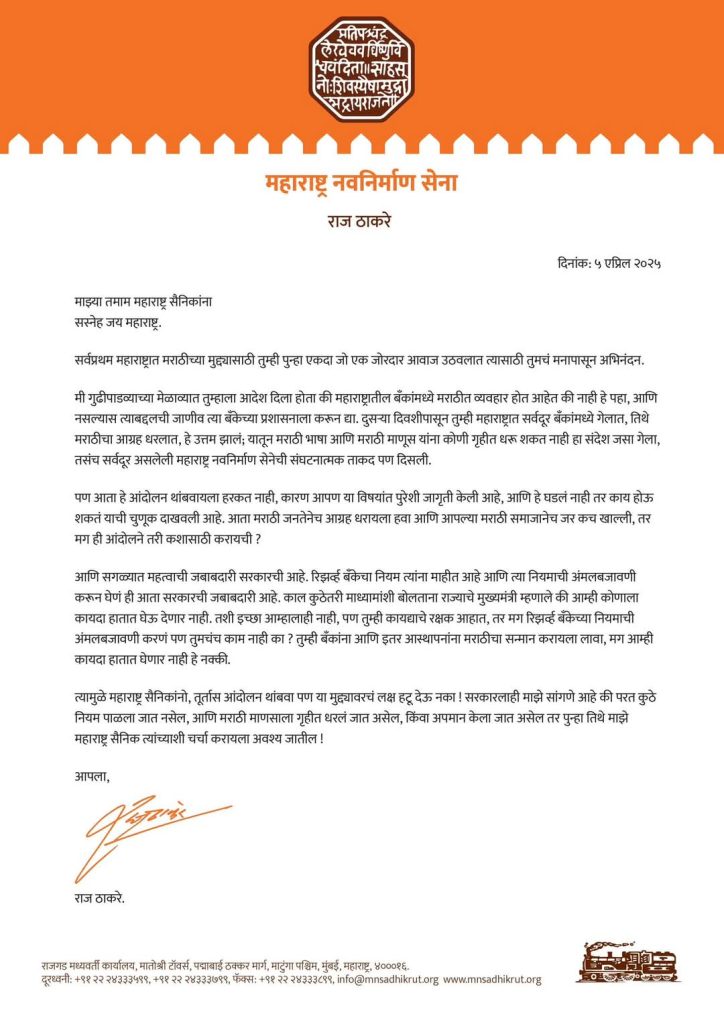 प्रतिपच्चंद्र
लेखेव वर्धिष्णुर्वि
श्ववंदिता॥ साहसू
नोः शिवस्यैषा मुद्रा
भद्राय राजते॥
महाराष्ट्र नवनिर्माण सेना
राज ठाकरे
दिनांक: ५ एप्रिल २०२५
माझ्या तमाम महाराष्ट्र सैनिकांना
सस्नेह जय महाराष्ट्र.
सर्वप्रथम महाराष्ट्रात मराठीच्या मुद्द्यासाठी तुम्ही पुन्हा एकदा जो एक जोरदार आवाज उठवलात त्यासाठी तुमचं मनापासून अभिनंदन.
मी गुढीपाडव्याच्या मेळाव्यात तुम्हाला आदेश दिला होता की महाराष्ट्रातील बँकांमध्ये मराठीत व्यवहार होत आहेत की नाही हे पहा, आणि
नसल्यास त्याबद्दलची जाणीव त्या बँकेच्या प्रशासनाला करून द्या. दुसऱ्या दिवशीपासून तुम्ही महाराष्ट्रात सर्वदूर बँकांमध्ये गेलात, तिथे
मराठीचा आग्रह धरलात, हे उत्तम झालं; यातून मराठी भाषा आणि मराठी माणूस यांना कोणी गृहीत धरू शकत नाही हा संदेश जसा गेला,
तसंच सर्वदूर असलेली महाराष्ट्र नवनिर्माण सेनेची संघटनात्मक ताकद पण दिसली.
पण आता हे आंदोलन थांबवायला हरकत नाही, कारण आपण या विषयांत पुरेशी जागृती केली आहे, आणि हे घडलं नाही तर काय होऊ
शकतं याची चुणूक दाखवली आहे. आता मराठी जनतेनेच आग्रह धरायला हवा आणि आपल्या मराठी समाजानेच जर कच खाल्ली, तर
मग ही आंदोलने तरी कशासाठी करायची ?
आणि सगळ्यात महत्वाची जबाबदारी सरकारची आहे. रिझर्व्ह बँकेचा नियम त्यांना माहीत आहे आणि त्या नियमाची अंमलबजावणी
करून घेणं ही आता सरकारची जबाबदारी आहे. काल कुठेतरी माध्यमांशी बोलताना राज्याचे मुख्यमंत्री म्हणाले की आम्ही कोणाला
कायदा हातात घेऊ देणार नाही. तशी इच्छा आम्हालाही नाही, पण तुम्ही कायद्याचे रक्षक आहात, तर मग रिझर्व्ह बँकेच्या नियमाची
अंमलबजावणी करणं पण तुमचंच काम नाही का ? तुम्ही बँकांना आणि इतर आस्थापनांना मराठीचा सन्मान करायला लावा, मग आम्ही
कायदा हातात घेणार नाही हे नक्की.
त्यामुळे महाराष्ट्र सैनिकांनो, तूर्तास आंदोलन थांबवा पण या मुद्द्यावरचं लक्ष हटू देऊ नका ! सरकारलाही माझे सांगणे आहे की परत कुठे
नियम पाळला जात नसेल, आणि मराठी माणसाला गृहीत धरलं जात असेल, किंवा अपमान केला जात असेल तर पुन्हा तिथे माझे
महाराष्ट्र सैनिक त्यांच्याशी चर्चा करायला अवश्य जातील !
आपला,
राज ठाकरे.
राजगड मध्यवर्ती कार्यालय, मातोश्री टॉवर्स, पद्माबाई ठक्कर मार्ग, माटुंगा पश्चिम, मुंबई, महाराष्ट्र, ४०००१६.
दूरध्वनी: +९१ २२ २४३३३५९९, +९१ २२ २४३३३७९९, फॅक्स: +९१ २२ २४३३३८९९, info@mnsadhikrut.org www.mnsadhikrut.org